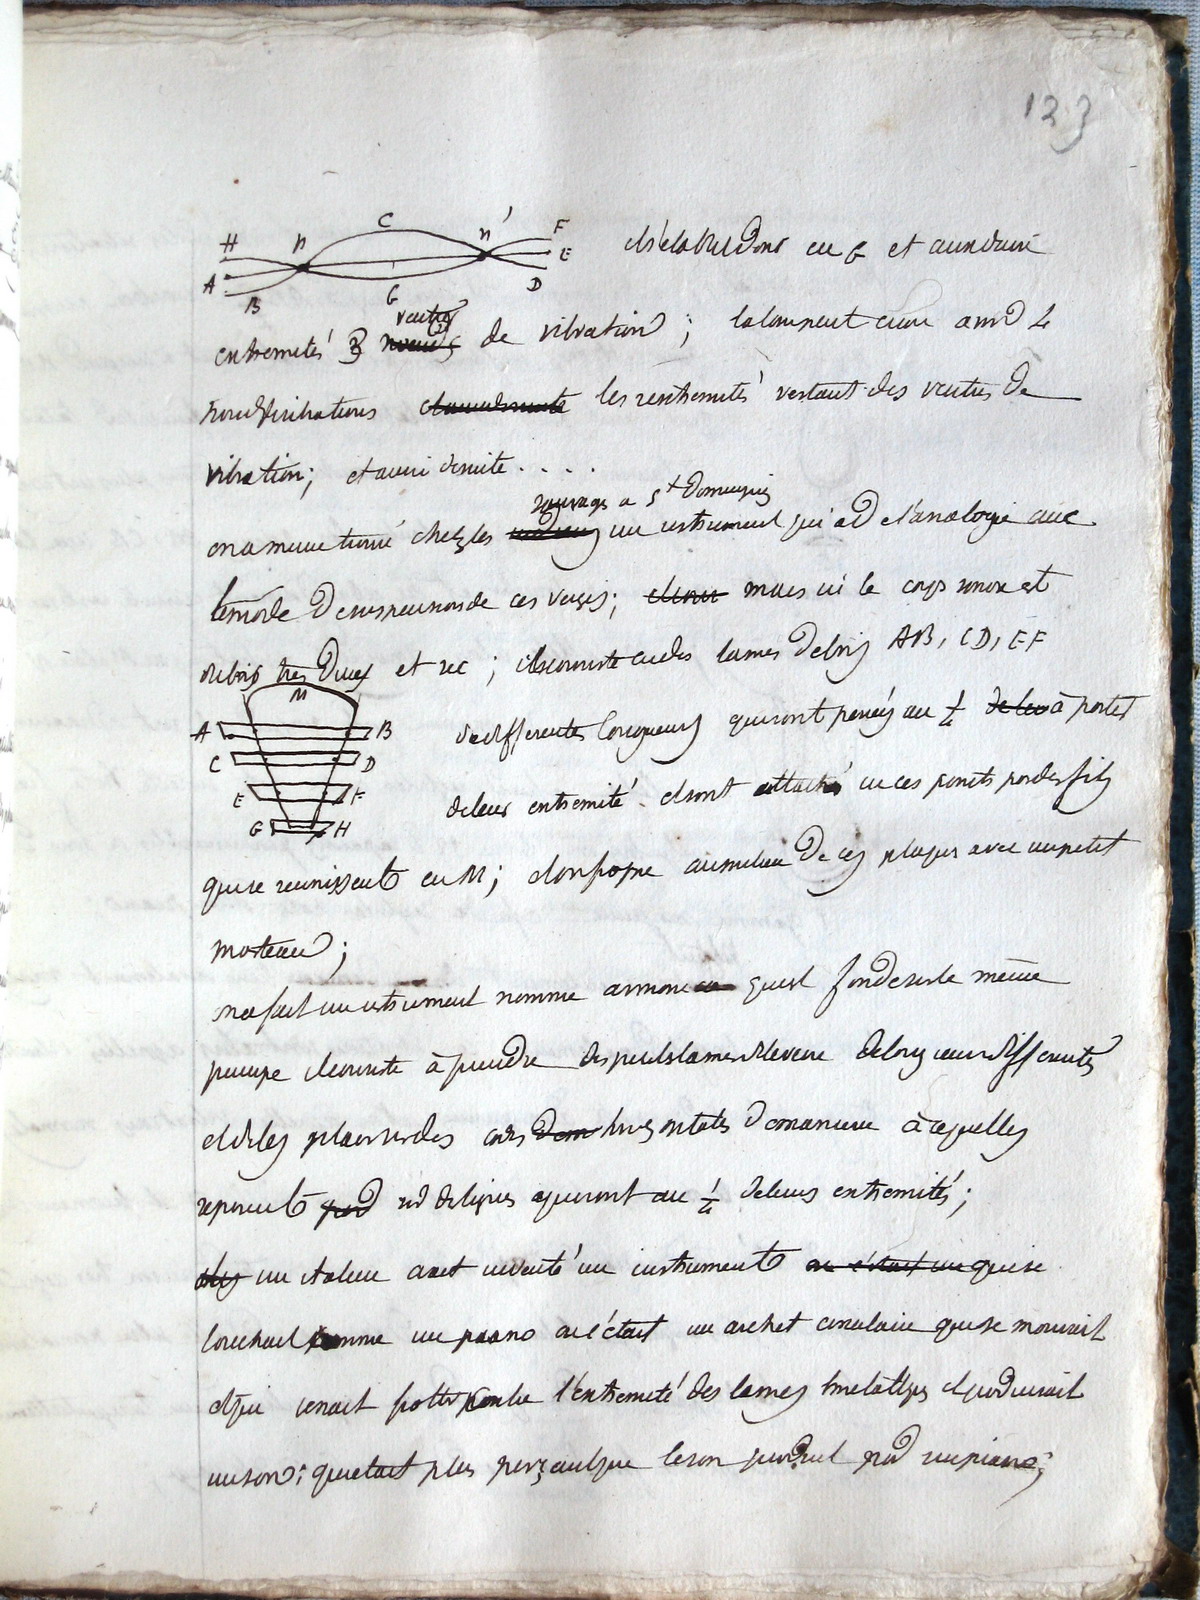 123
H n C n' F
E
A B G D
il s'etablit donc en G et aux deux
extremités 3 ventres noeuds de vibration ; la lame peut avoir 4
noeuds vibrations les extremités restant des ventres de
vibration; et ainsi de suite . . . .
sauvages a St Domingue
on a meme trouvé chez les un instrument qui a de l'analogie avec
le mode de suspension de ces verges; mais ici le corps sonore est
du bois tres dur et sec ; il consiste en des lames de bois AB, CD, EF
M
A B
de differentes longueurs qui sont percés au 1/4 de leur à partir
C D
E F
de leur extremité et sont attachés en ces points par des fils
G H
qui se reunissent en M; et on frappe au milieu de ces plaques avec un petit
marteau ;
on a fait un instrument nommé armonica qui est fondé sur le même
principe il consiste à prendre des petits lames de verre de longueur differentes
et de les placer sur des cordes horizontales de maniere à ce qu'elles
reposent sur des lignes qui sont au 1/4 de leurs extremités ;
un italien avait inventé un instrument ou c'était un qui se
touchait comme un piano ou c'était un archet circulaire qui se mouvait
et qui venait frotter contre l'extremité des lames metalliques et produisait
un son: qui etait plus perçant que le son produit par un piano ;